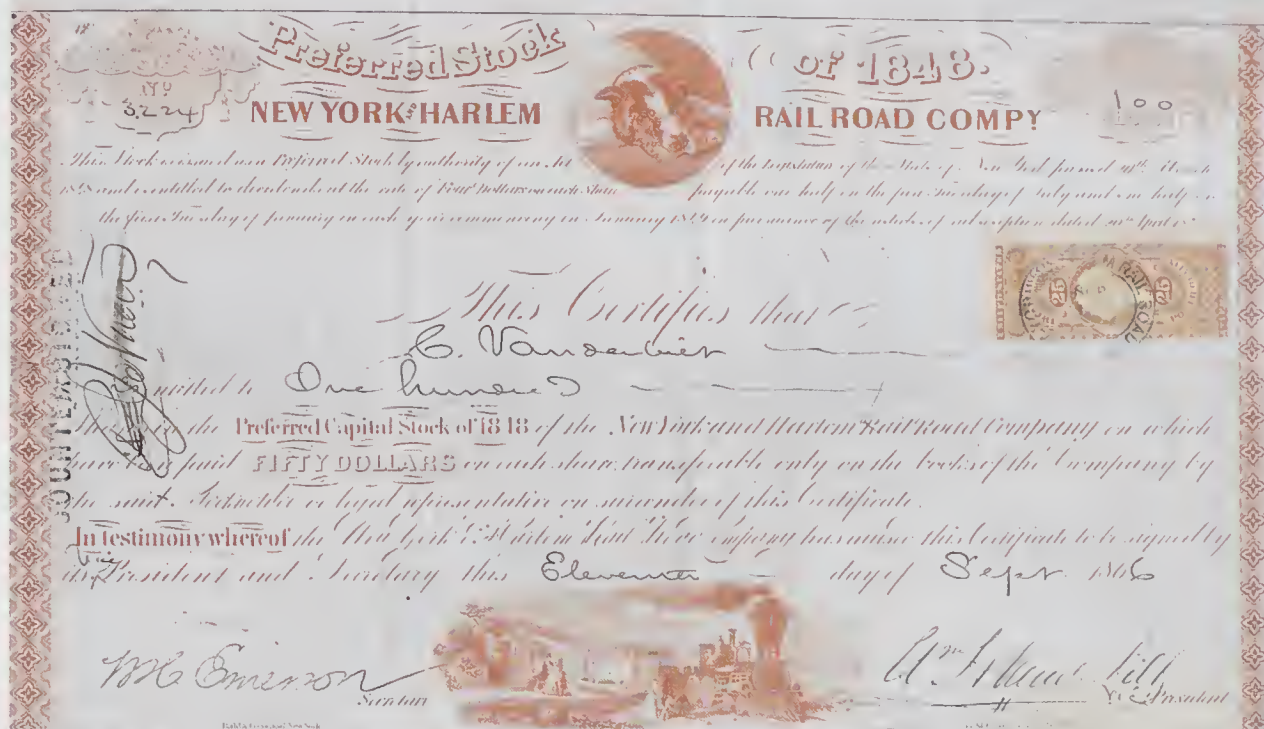 Preferred Stock of 1848.
No 3224
NEW YORK AND HARLEM RAIL ROAD COMPY
100
This Stock is issued as a Preferred Stock by authority of an Act of the Legislature of the State of New York passed
1848 and is entitled to dividends at the rate of Four Dollars on each Share payable one half on the first Tuesday of July and one half on
the first Tuesday of January in each year commencing in January in pursuance of the articles of subscription dated April
COUNTERSIGNED
25 25
RAIL ROAD
This Certifies that
C. Vanderbilt
entitled to One hundred
Shares in the Preferred Capital Stock of 1848 of the New York and Harlem Rail Road Company on which
have been paid FIFTY DOLLARS on each share, transferable only on the books of the Company by
the said Stockholder or legal representative on surrender of this Certificate.
In testimony whereof the New York & Harlem Rail Road Company has caused this Certificate to be signed by
its Vice President and Secretary this Eleventh day of Sept. 1866
W C Emerson
Secretary
Wm H Vanderbilt
Vice President